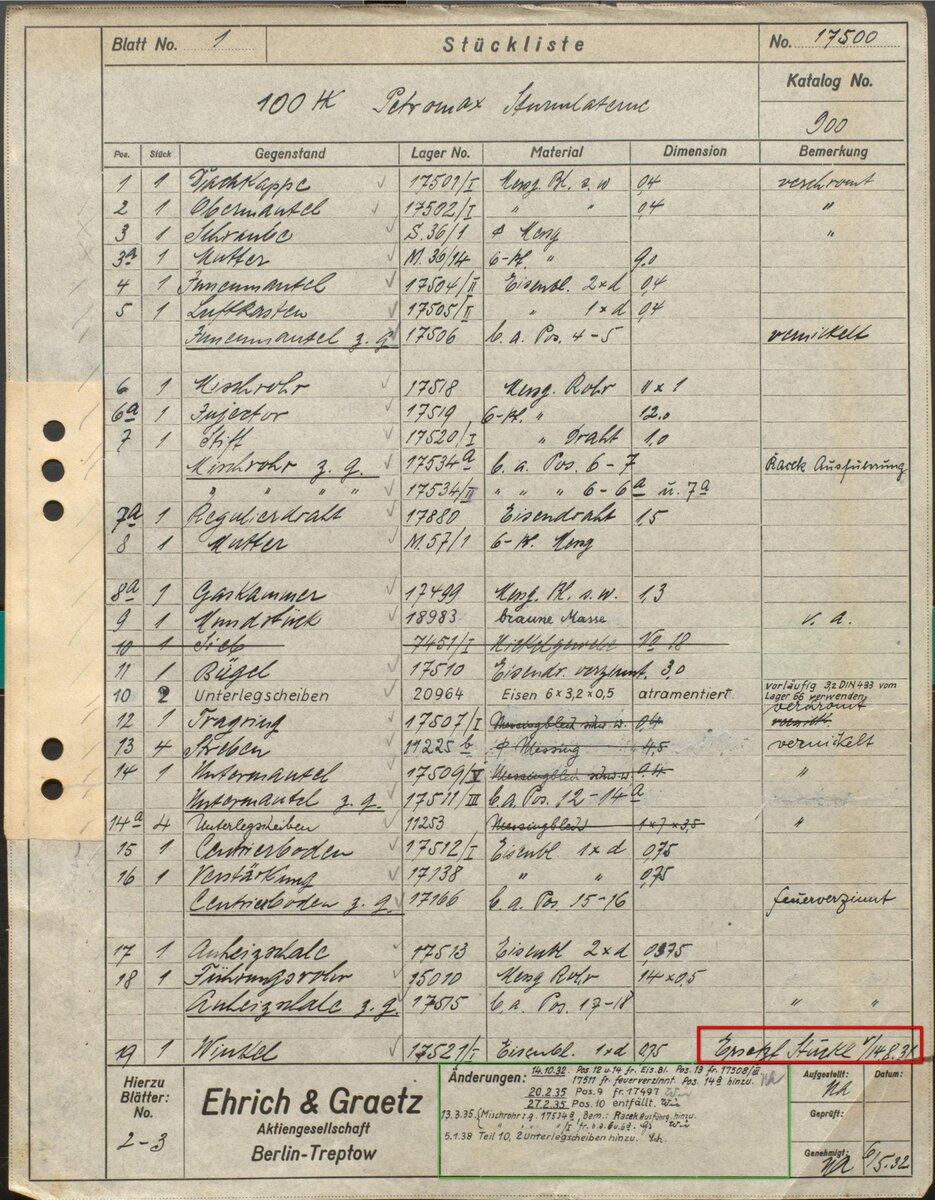 Blatt No. 1 Stückliste No. 17500
Katalog No.
100 HK Petromax Sturmlaterne 900
Pos. Stück Gegenstand Lager No. Material Dimension Bemerkung
1 1 Dachkappe 17501/I Messg. Bl. s. w 0,4 verchromt
2 1 Obermantel 17502/I " " 0,4 "
3 1 Schraube S.36/1 Messg "
3a 1 Mutter M.36/14 6-kt. " 9.0
4 1 Innenmantel 17504/II Eisenbl. 2×d 0,4
5 1 Luftkasten 17505/II " 1×d 0,4
Innenmantel z. g. 17506 b. a. Pos. 4-5 vernickelt
6 1 Mischrohr 17518 Messg. Rohr 11×1
6a 1 Injector 17519 6-kt. " 12.0
7 1 Stift 17520/I " Draht 1,0
Mischrohr z. g. 17534a b. a. Pos. 6-7 Racek Ausführung
" " " " 17534/II " " " 6-6a u. 7a
7a 1 Regulierdraht 17880 Eisendraht 1,5
8 1 Mutter M.57/1 6-kt. Messg
8a 1 Gaskammer 17499 Messg. Bl. s. w. 1,3
9 1 Mundstück 18983 braune Masse v. a.
10 1 Sieb 7451/I Nickelgewebe No 18
11 1 Bügel 17510 Eisendr. verzinnt. 3,0
10 2 Unterlegscheiben 20964 Eisen 6×3,2×0,5 atramentiert vorläufig 3,2 DIN 433 vom
Lager 66 verwenden
12 1 Tragring 17507/I Messingblech s. w. 0,4 verchromt
13 4 Streben 11225 b Messing 4,5 vernickelt
14 1 Untermantel 17509/V Messingblech s. w. 0.4 "
Untermantel z. g. 17511/III b. a. Pos. 12-14a
14a 4 Unterlegscheiben 11253 Messingblech 1×7×3,5 "
15 1 Centrierboden 17512/I Eisenbl 1×d 0,75
16 1 Verstärkung 17138 " " 0,75
Centrierboden z. g. 17166 b. a. Pos. 15-16 feuerverzinnt
17 1 Anheizschale 17513 Eisenbl 2×d 0,375
18 1 Führungsrohr 15010 Messg Rohr 14×0,5
Anheizschale z. g. 17515 b. a. Pos. 17-18 " "
19 1 Winkel 17521/I Eisenbl. 1×d 0,75 Ersetzt Stückl
Hierzu
Blätter:
No.
2-3
Ehrich & Graetz
Aktiengesellschaft
Berlin-Treptow
Änderungen: 14.10.32 Pos 12 u.14 fr. Eis. Bl. Pos. 13 fr. 17508/III
17511 fr feuerverzinnt. Pos. 14a hinzu.
20.2.35 Pos. 9 fr. 17497
27.2.35 Pos. 10 entfällt.
13.3.35 Mischrohr z. g. 17534a, Bem.: Racek Ausführ. hinzu.
5.1.38 Teil 10, 2 Unterlegscheiben hinzu.
Aufgestellt: Datum:
Geprüft:
Genehmigt: 6/5.32